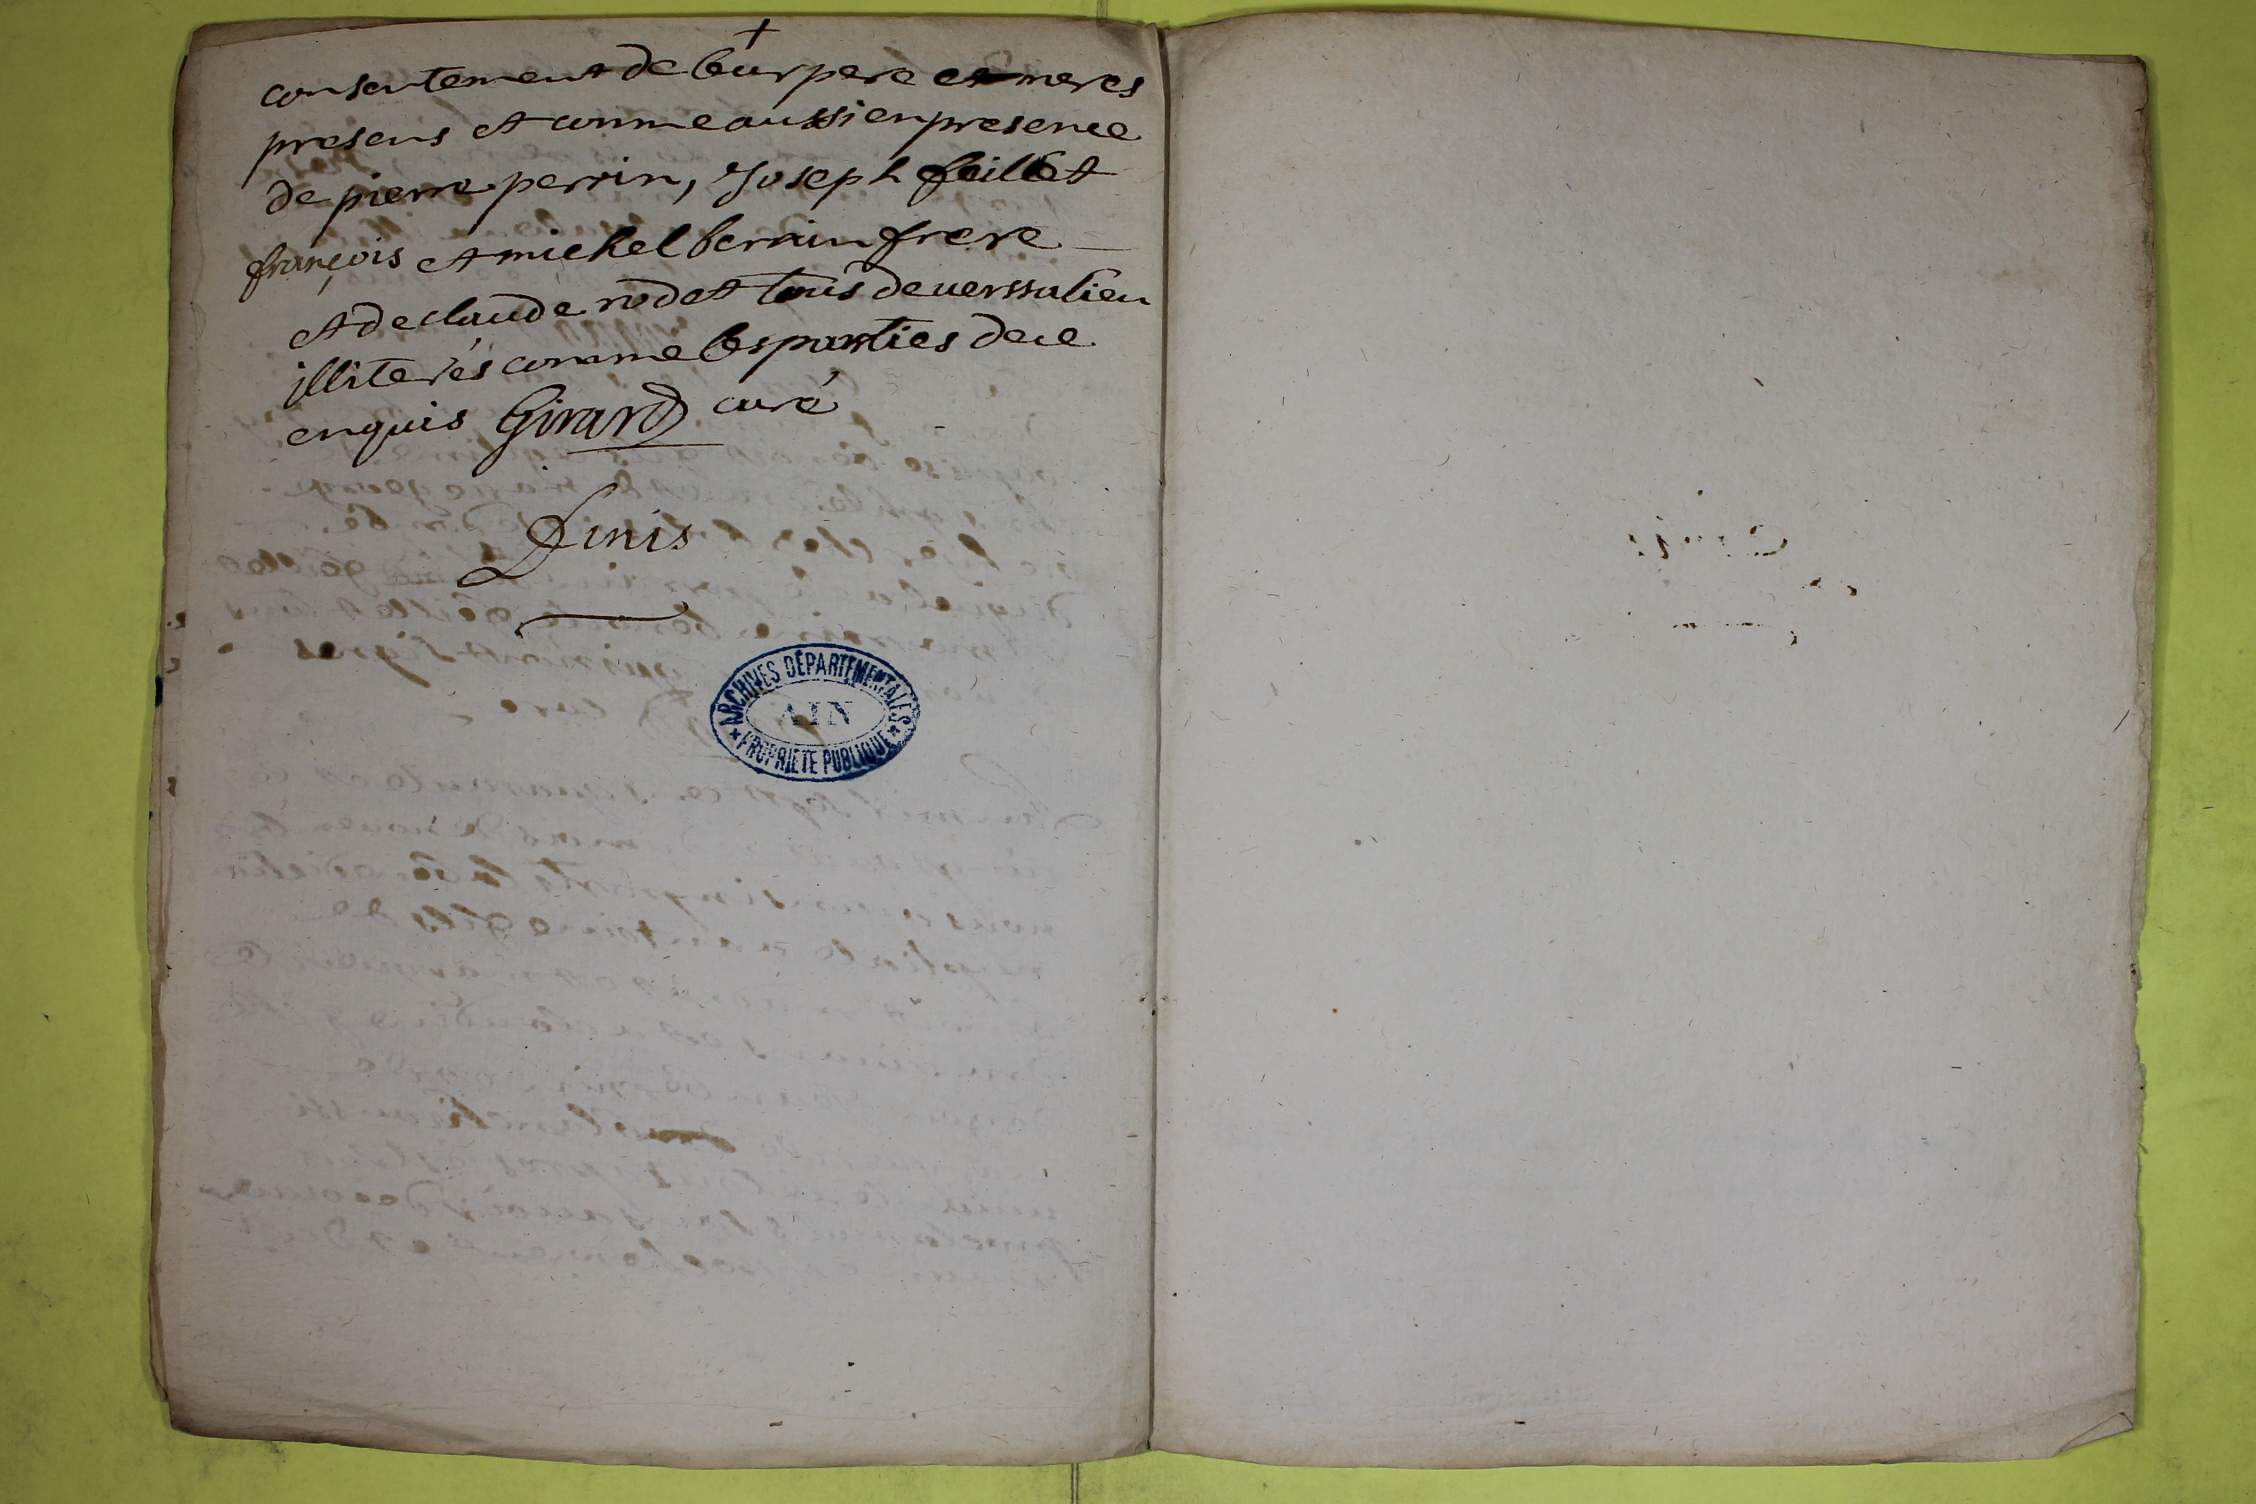 consentement de leur pere et meres
presens et comme aussi en presence
de pierre perrin, Joseph feillet
françois et michel berrin frere
et de claude rodet tous de verssalieu
illiterés comme les parties de ce
enquis Girard curé
Finis
ARCHIVES DÉPARTEMENTALES
AIN
PROPRIETE PUBLIQUE